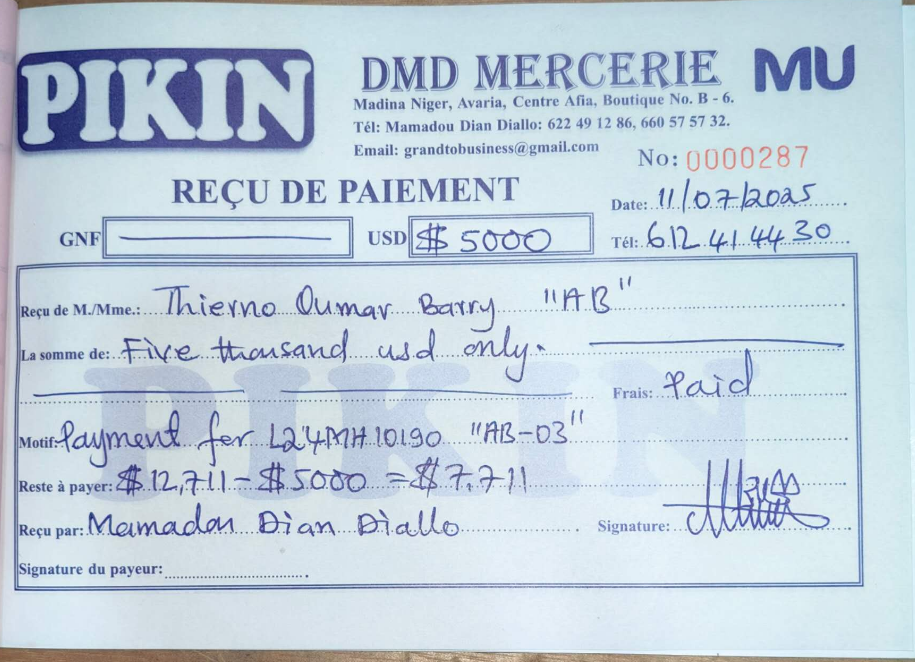 PIKIN
DMD MERCERIE
MU
Madina Niger, Avaria, Centre Afia, Boutique No. B - 6.
Tél: Mamadou Dian Diallo: 622 49 12 86, 660 57 57 32.
Email: grandtobusiness@gmail.com
No: 0000287
REÇU DE PAIEMENT
Date: 11/07/2025
GNF USD $ 5000
Tél: 612 41 44 30
Reçu de M./Mme.: Thierno Oumar Barry "AB"
La somme de: Five thousand usd only.
Frais: Paid
Motif: Payment for L24MH10190 "AB-03"
Reste à payer: $12,711 - $5000 = $7,711
Reçu par: Mamadou Dian Diallo Signature:
Signature du payeur:
PIKIN